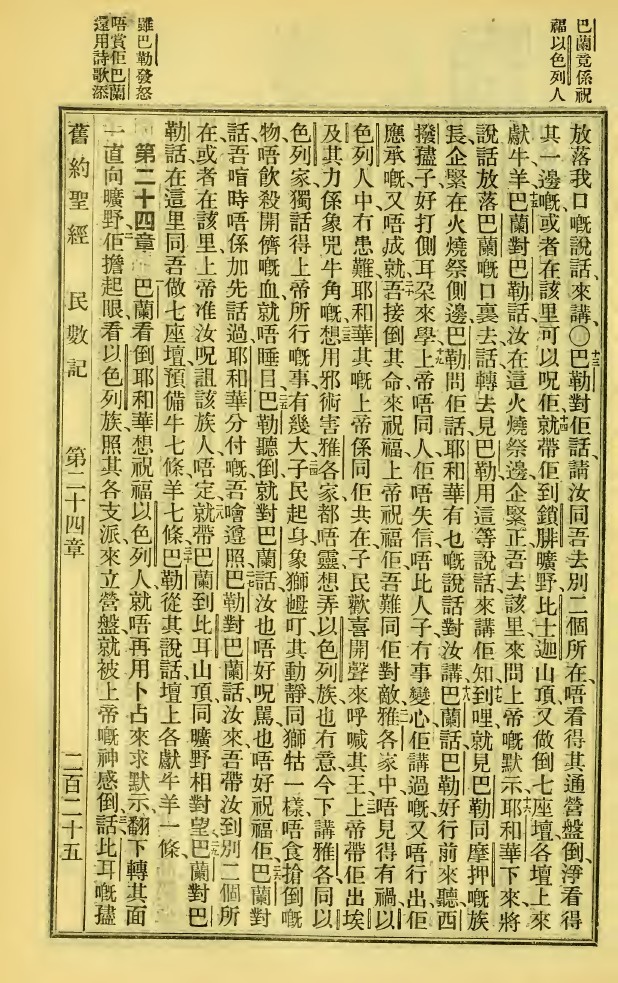 巴蘭竟係祝
福以色列人
雖巴勒發怒
唔賞佢巴蘭
還用詩歌添
放落我口嘅說話、來講〇十三巴勒對佢話、請汝同吾去別二個所在、唔看得其通營盤倒、淨看得
其一邊嘅、或者在該里可以呪佢、十四就帶佢到鎖腓曠野、比士迦山頂、又做倒七座壇、各壇上來
獻牛羊、十五巴蘭對巴勒話、汝在這火燒祭邊企緊、正吾去該里來問上帝嘅默示、十六耶和華下來、將
說話放落巴蘭嘅口裏去、話轉去見巴勒、用這等說話來講佢知、十七到哩就見巴勒同摩押嘅族
長、企緊在火燒祭側邊、巴勒問佢話、耶和華有乜嘅說話對汝講、十八巴蘭話、巴勒好行前來聽、西
撥孻子好打側耳朶來學、十九上帝唔同人、佢唔失信、唔比人子有事變心、佢講過嘅又唔行出、佢
應承嘅又唔成就、二十吾接倒其命來祝福、上帝祝福佢、吾難同佢對敵、二一雅各家中、唔見得有禍、以
色列人中冇患難、耶和華其嘅上帝係同佢共在、子民歡喜開聲來呼喊其王、二二上帝帶佢出埃
及、其力係象兕牛角嘅、二三想用邪術害雅各家都唔靈、想弄以色列族也冇意、今下講雅各同以
色列家、獨話得上帝所行嘅事、有幾大、二四子民起身象獅𧊅、叮其動靜同獅牯一樣、唔食搶倒嘅
物、唔飲殺開儕嘅血、就唔睡目、二五巴勒聽倒就對巴蘭話、汝也唔好呪罵、也唔好祝福佢、二六巴蘭對
話、吾喑時唔係加先話過、耶和華分付嘅、吾噲遵照、二七巴勒對巴蘭話、汝來吾帶汝到別二個所
在、或者在該里、上帝准汝呪詛該族人、唔定、二八就帶巴蘭到比耳山頂、同曠野相對望、二九巴蘭對巴
勒話、在這里同吾做七座壇、預備牛七條、羊七條、三十巴勒從其說話、壇上各獻牛羊一條、
第二十四章　一巴蘭看倒耶和華想祝福以色列人、就唔再用卜占來求默示、翻下轉其面
一直向曠野、二佢擔起眼看以色列族、照其各支派來立營盤、就被上帝嘅神感倒、三話比耳嘅孻
舊約聖經　民數記　第二十四章　二百二十五